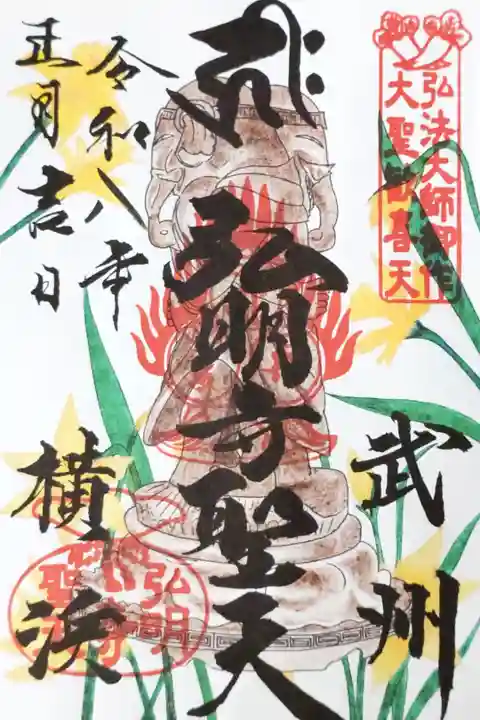 弘法大師御作
大聖歓喜天
武州
弘明寺聖天
令和八年
正月吉日
横浜
弘明